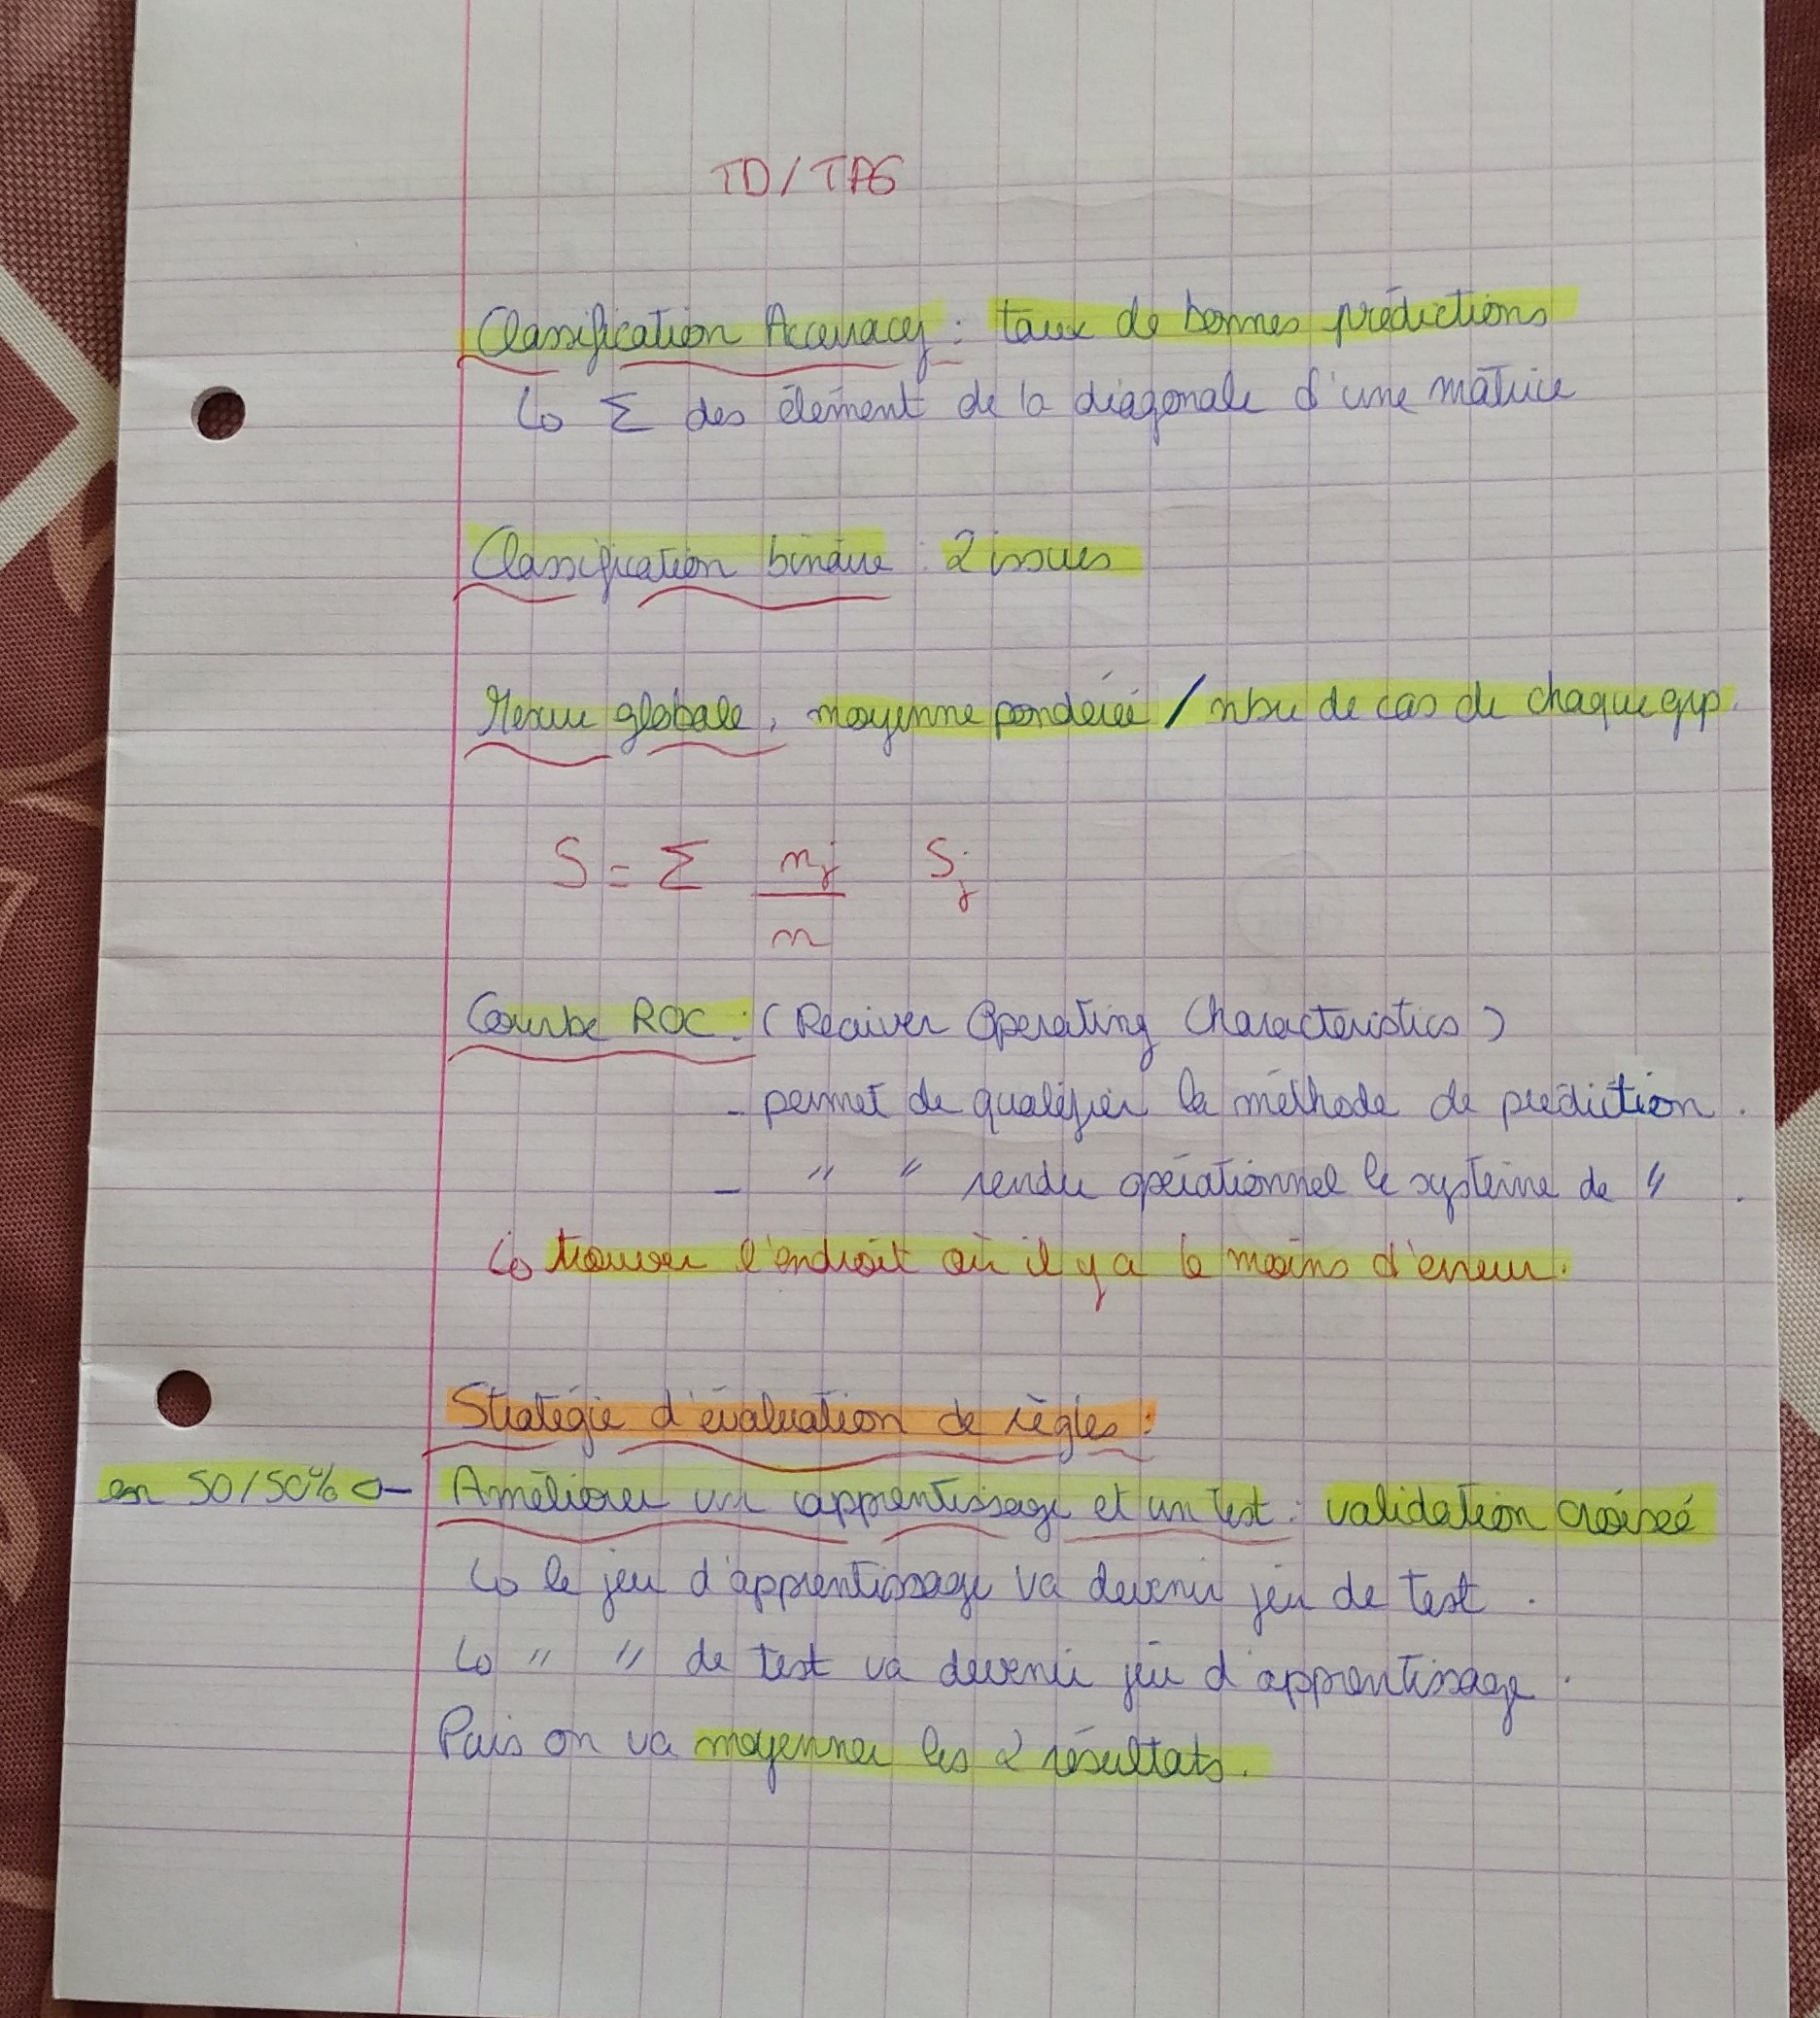 TD / TP6
Classification Accuracy : taux de bonnes prédictions
↳ Σ des élément de la diagonale d'une matrice
Classification binaire : 2 issues
Mesure globale : moyenne pondérée / nbre de cas de chaque grp.
S = Σ nj/n Sj
Courbe ROC : (Reciver Operating Characteristics)
- permet de qualifier la méthode de prédiction.
- " " rendre opérationnel le système de ".
↳ trouver l'endroit où il y a le moins d'erreur.
Stratégie d'évaluation de règles :
en 50/50% Améliorer un apprentissage et un test : validation croiseé
↳ le jeu d'apprentissage va devenir jeu de test.
↳ " " de test va devenir jeu d'apprentissage.
Puis on va moyenner les 2 résultats.